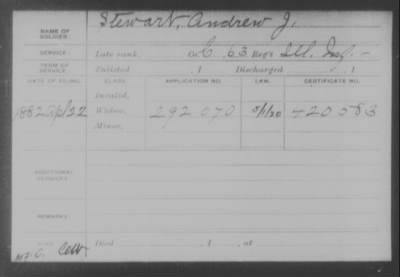 NAME OF SOLDIER: Stewart, Andrew J.
SERVICE: Late rank Co. C, 63 Reg't Ill. Inf.
TERM OF SERVICE: Enlisted , 1 Discharged , 1
DATE OF FILING. CLASS. APPLICATION NO. LAW. CERTIFICATE NO.
Invalid,
1882 /22 Widow, 292 070 420 583
Minor,
ADDITIONAL SERVICES:
REMARKS:
Died , 1 , at